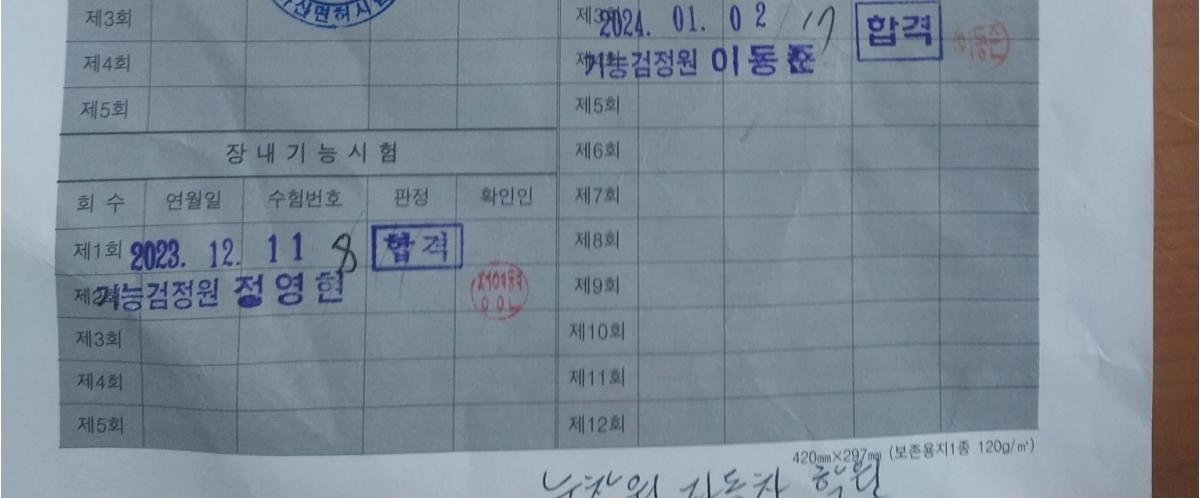 제3회
면허시험
제4회
제5회
장 내 기 능 시 험
회 수 연월일 수험번호 판정 확인인
제1회 2023. 12. 11 8 합격
제2회 기능검정원 정영현
제3회
제4회
제5회
제3회 2024. 01. 02 17 합격
기능검정원 이동준
제5회
제6회
제7회
제8회
제9회
제10회
제11회
제12회
420㎜×297㎜ (보존용지1종 120g/㎡)
자동차 학원